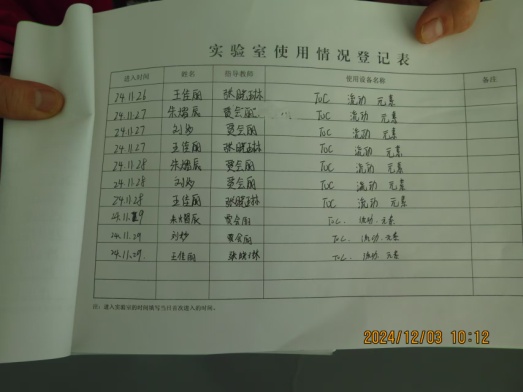 实验室使用情况登记表
进入时间 姓名 指导教师 使用设备名称 备注
24.11.26 王佳丽 张 TOC 流动 元素
24.11.27 朱熠辰 贾会丽 TOC 流动 元素
24.11.27 刘 贾会丽 TOC 流动 元素
24.11.27 王佳丽 张 TOC 流动 元素
24.11.28 朱熠辰 贾会丽 TOC 流动 元素
24.11.28 刘 贾会丽 TOC 流动 元素
24.11.28 王佳丽 张 TOC 流动 元素
24.11.29 朱熠辰 贾会丽 TOC. 流动. 元素
24.11.29 刘 贾会丽 TOC. 流动. 元素
24.11.29. 王佳丽 张 TOC. 流动. 元素
注：进入实验室的时间填写当日名族进入的时间。
2024/12/03 10:12